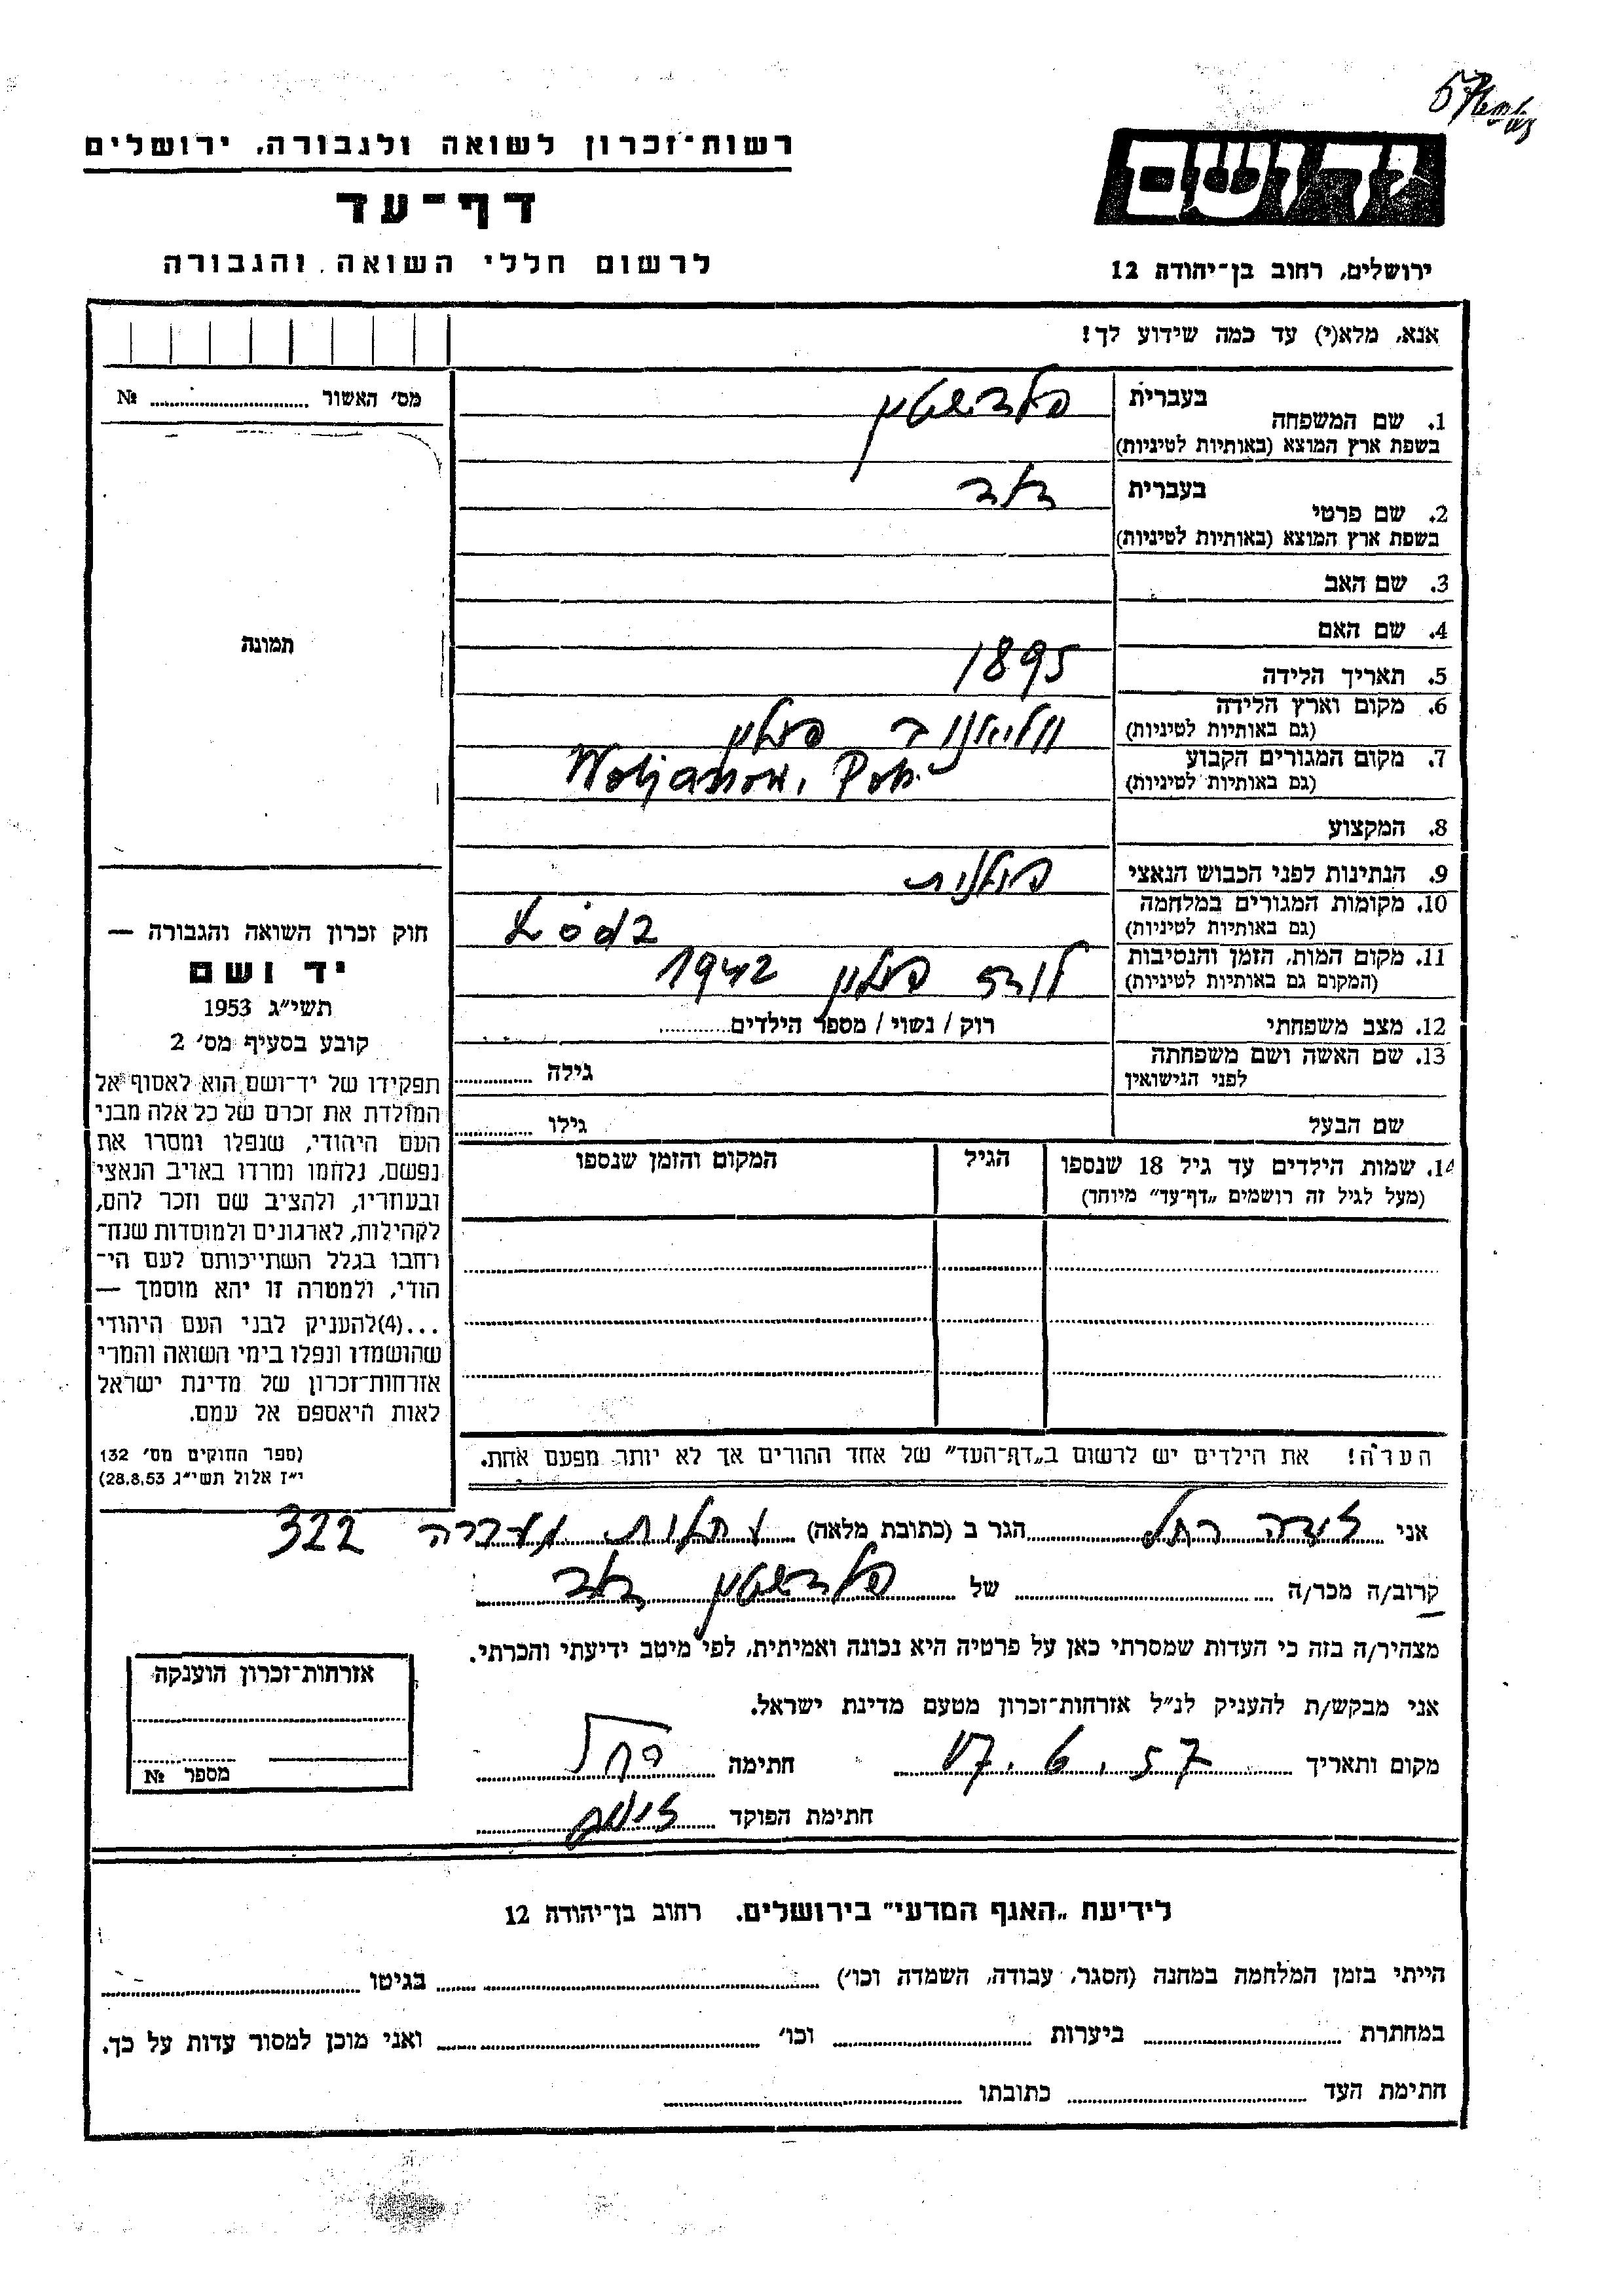 רשות־זכרון לשואה ולגבורה, ירושלים
דף־עד
לרשום חללי השואה והגבורה
יד ושם
ירושלים, רחוב בן־יהודה 12
אנא, מלא(י) עד כמה שידוע לך!
מס׳ האשור ........ №
תמונה
1. שם המשפחה
בעברית
גולדשטיין
בשפת ארץ המוצא (באותיות לטיניות)
2. שם פרטי
בעברית
בשפת ארץ המוצא (באותיות לטיניות)
3. שם האב
4. שם האם
5. תאריך הלידה 1895
6. מקום וארץ הלידה
(גם באותיות לטיניות)
פולין
7. מקום המגורים הקבוע
(גם באותיות לטיניות)
Woljanow, Pol.
8. המקצוע
9. הנתינות לפני הכבוש הנאצי פולנית
10. מקומות המגורים במלחמה
(גם באותיות לטיניות)
11. מקום המות, הזמן והנסיבות
(המקום גם באותיות לטיניות)
לודז פולין 1942
12. מצב משפחתי רוק / נשוי / מספר הילדים........
13. שם האשה ושם משפחתה
לפני הנישואין
גילה ........
שם הבעל גילו ........
14. שמות הילדים עד גיל 18 שנספו
(מעל לגיל זה רושמים „דף־עד” מיוחד)
הגיל
המקום והזמן שנספו
הערה! את הילדים יש לרשום ב„דף־העד” של אחד ההורים אך לא יותר מפעם אחת.
חוק זכרון השואה והגבורה —
יד ושם
תשי״ג 1953
קובע בסעיף מס׳ 2
תפקידו של יד־ושם הוא לאסוף אל
המולדת את זכרם של כל אלה מבני
העם היהודי, שנפלו ומסרו את
נפשם, נלחמו ומרדו באויב הנאצי
ובעוזריו, ולהציב שם וזכר להם,
לקהילות, לארגונים ולמוסדות שנח־
רחבו בגלל השתייכותם לעם הי־
הודי, ולמטרה זו יהא מוסמך —
...(4)להעניק לבני העם היהודי
שהושמדו ונפלו בימי השואה והמרי
אזרחות־זכרון של מדינת ישראל
לאות היאספם אל עמם.
(ספר החוקים מס׳ 132
י״ז אלול תשי״ג 28.8.53)
אני רחל הגר ב (כתובת מלאה) מעברה 322
קרוב/ה מכר/ה ........ של גולדשטיין
מצהיר/ה בזה כי העדות שמסרתי כאן על פרטיה היא נכונה ואמיתית, לפי מיטב ידיעתי והכרתי.
אני מבקש/ת להעניק לנ״ל אזרחות־זכרון מטעם מדינת ישראל.
מקום ותאריך 17.6.57 חתימה רחל
חתימת הפוקד
אזרחות־זכרון הוענקה
מספר №
לידיעת „האגף המדעי” בירושלים. רחוב בן־יהודה 12
הייתי בזמן המלחמה במחנה (הסגר, עבודה, השמדה וכו׳) ........ בגיטו ........
במחתרת ........ ביערות ........ וכו׳ ........ ואני מוכן למסור עדות על כך.
חתימת העד ........ כתובתו ........